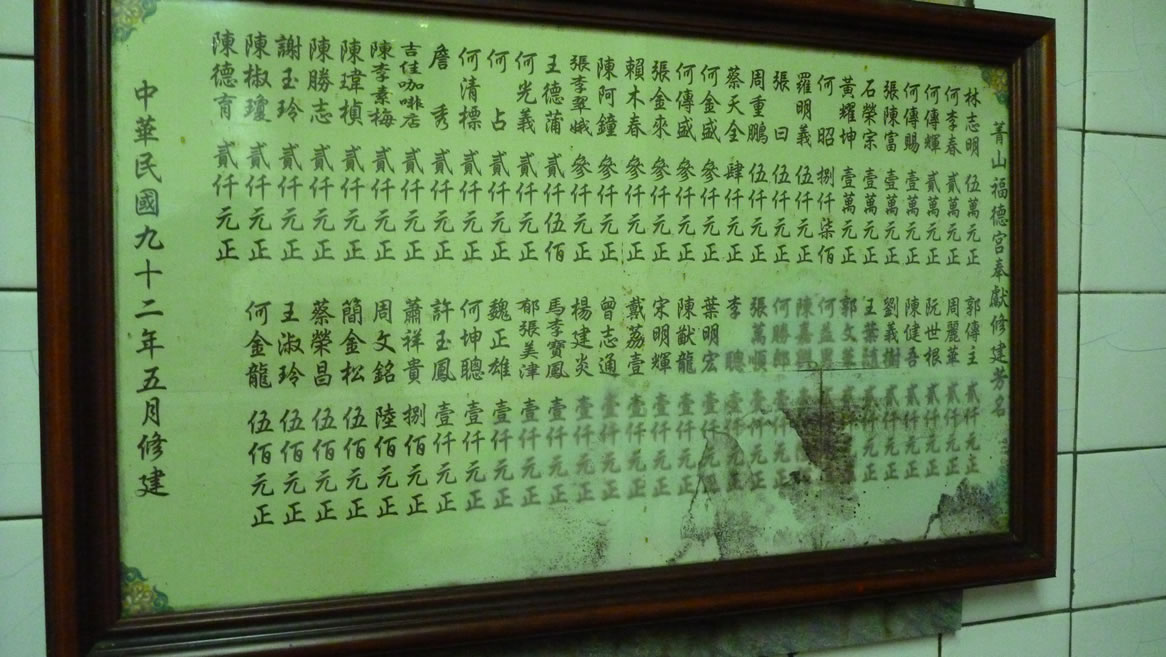 菁山福德宮奉獻修建芳名
林志明 伍萬元正
何李春 貳萬元正
何傳輝 貳萬元正
何傳賜 壹萬元正
張陳富 壹萬元正
石榮宗 壹萬元正
黃耀坤 壹萬元正
何昭 捌仟柒佰
羅明義 伍仟元正
張曰 伍仟元正
周重鵬 伍仟元正
蔡天全 肆仟元正
何金盛 參仟元正
何傳盛 參仟元正
張金來 參仟元正
賴木春 參仟元正
陳阿鐘 參仟元正
張李翠娥 參仟元正
王德蒲 貳仟伍佰
何光義 貳仟元正
何占 貳仟元正
何清標 貳仟元正
詹秀 貳仟元正
吉佳咖啡店 貳仟元正
陳李素梅 貳仟元正
陳瑋楨 貳仟元正
陳勝志 貳仟元正
謝玉玲 貳仟元正
陳椒瓊 貳仟元正
陳德育 貳仟元正
郭傳主 貳仟元正
周麗華 貳仟元正
阮世根 貳仟元正
陳健吾 貳仟元正
劉義樹 貳仟元正
王葉 貳仟元正
郭文 貳
何益
陳嘉興
何勝郎 壹仟元正
張萬順 壹仟元正
李聰 壹仟元正
葉明宏 壹仟元正
陳猷龍 壹仟元正
宋明輝 壹仟元正
戴荔壹 壹仟元正
曾志通 壹仟元正
楊建炎 壹仟元正
馬李寶鳳 壹仟元正
郁張美津 壹仟元正
魏正雄 壹仟元正
何坤聰 壹仟元正
許玉鳳 壹仟元正
蕭祥貴 捌佰元正
周文銘 陸佰元正
簡金松 伍佰元正
蔡榮昌 伍佰元正
王淑玲 伍佰元正
何金龍 伍佰元正
中華民國九十二年五月修建